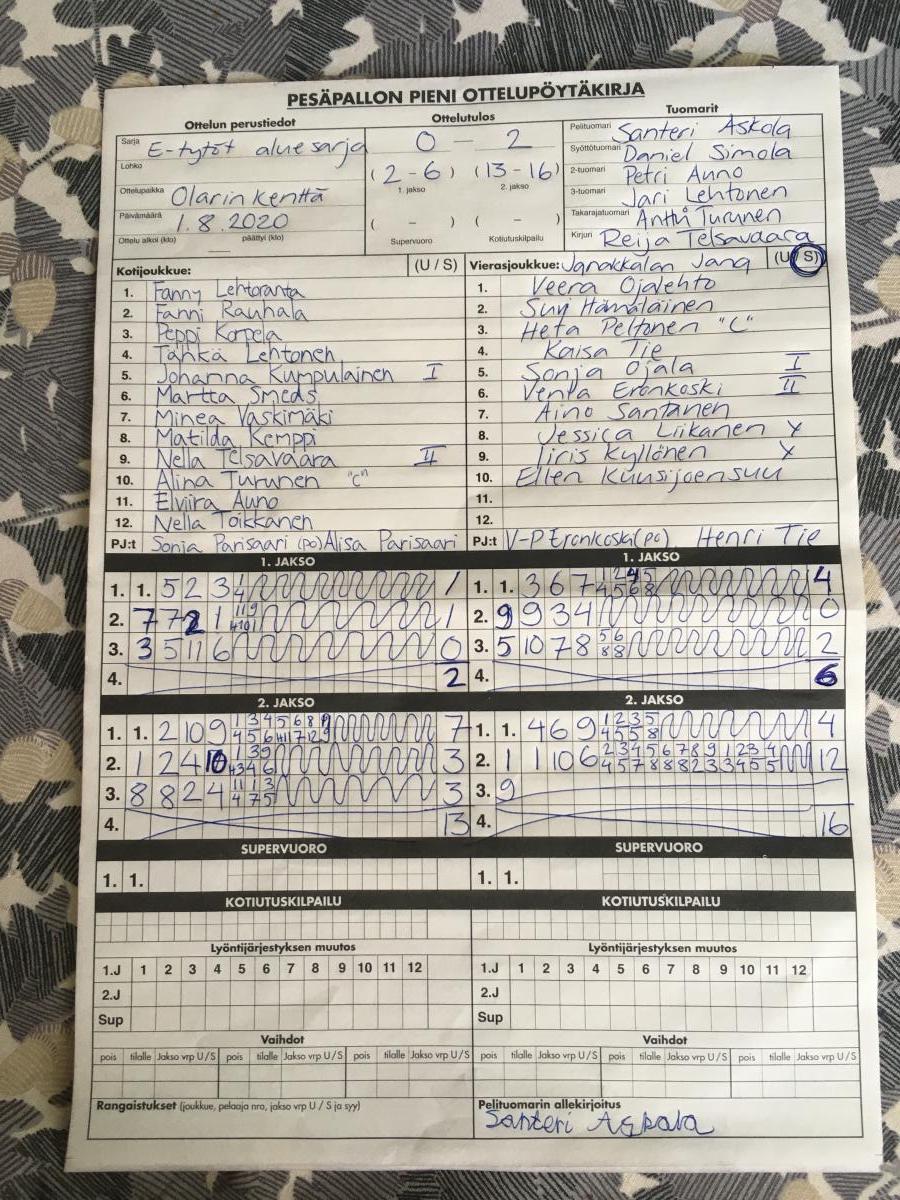 PESÄPALLON PIENI OTTELUPÖYTÄKIRJA
Ottelun perustiedot
Ottelutulos
Tuomarit
Sarja E-tytöt aluesarja
Lohko
Ottelupaikka Olarin kenttä
Päivämäärä 1.8.2020
Ottelu alkoi (klo) päättyi (klo)
0 – 2
(2-6) (13-16)
1. jakso 2. jakso
( - ) ( - )
Supervuoro Kotiutuskilpailu
Pelituomari Santeri Askola
Syöttötuomari Daniel Simola
2-tuomari Petri Auno
3-tuomari Jari Lehtonen
Takarajatuomari Antti Turunen
Kirjuri Reija Telsavaara
Kotijoukkue: (U / S)
1. Fanny Lehtoranta
2. Fanni Rauhala
3. Peppi Korpela
4. Tähkä Lehtonen
5. Johanna Kumpulainen I
6. Martta Smeds
7. Minea Väskimäki
8. Matilda Kemppi
9. Nella Telsavaara II
10. Alina Turunen "C"
11. Elviira Auno
12. Nella Toikkanen
PJ:t Sonja Parisaari (po) Alisa Parisaari
Vierasjoukkue: Janakkalan Jana (U / S)
1. Veera Ojalehto
2. Suvi Hämäläinen
3. Heta Peltonen "C"
4. Kaisa Tie
5. Sonja Ojala I
6. Venla Eronkoski II
7. Aino Santanen
8. Jessica Liikanen X
9. Iiris Kyllönen X
10. Ellen Kuusijoensuu
11.
12.
PJ:t V-P Eronkoski (po) Henri Tie
1. JAKSO
1. 1. 5 2 3 1
2. 7 7 2 1 1
3. 3 5 11 6 0
4. 2
1. JAKSO
1. 1. 3 6 7 4
2. 9 9 3 4 0
3. 5 10 7 8 2
4. 6
2. JAKSO
1. 1. 2 10 9 7
2. 1 2 4 10 3
3. 8 8 2 4 3
4. 13
2. JAKSO
1. 1. 4 6 9 4
2. 1 1 10 6 12
3. 9
4. 16
SUPERVUORO
1. 1.
SUPERVUORO
1. 1.
KOTIUTUSKILPAILU
KOTIUTUSKILPAILU
Lyöntijärjestyksen muutos
1.J 1 2 3 4 5 6 7 8 9 10 11 12
2.J
Sup
Lyöntijärjestyksen muutos
1.J 1 2 3 4 5 6 7 8 9 10 11 12
2.J
Sup
Vaihdot
pois tilalle Jakso vrp U / S pois tilalle Jakso vrp U / S pois tilalle Jakso vrp U / S
Vaihdot
pois tilalle Jakso vrp U / S pois tilalle Jakso vrp U / S pois tilalle Jakso vrp U / S
Rangaistukset (joukkue, pelaaja nro, jakso vrp U / S ja syy)
Pelituomarin allekirjoitus
Santeri Askola